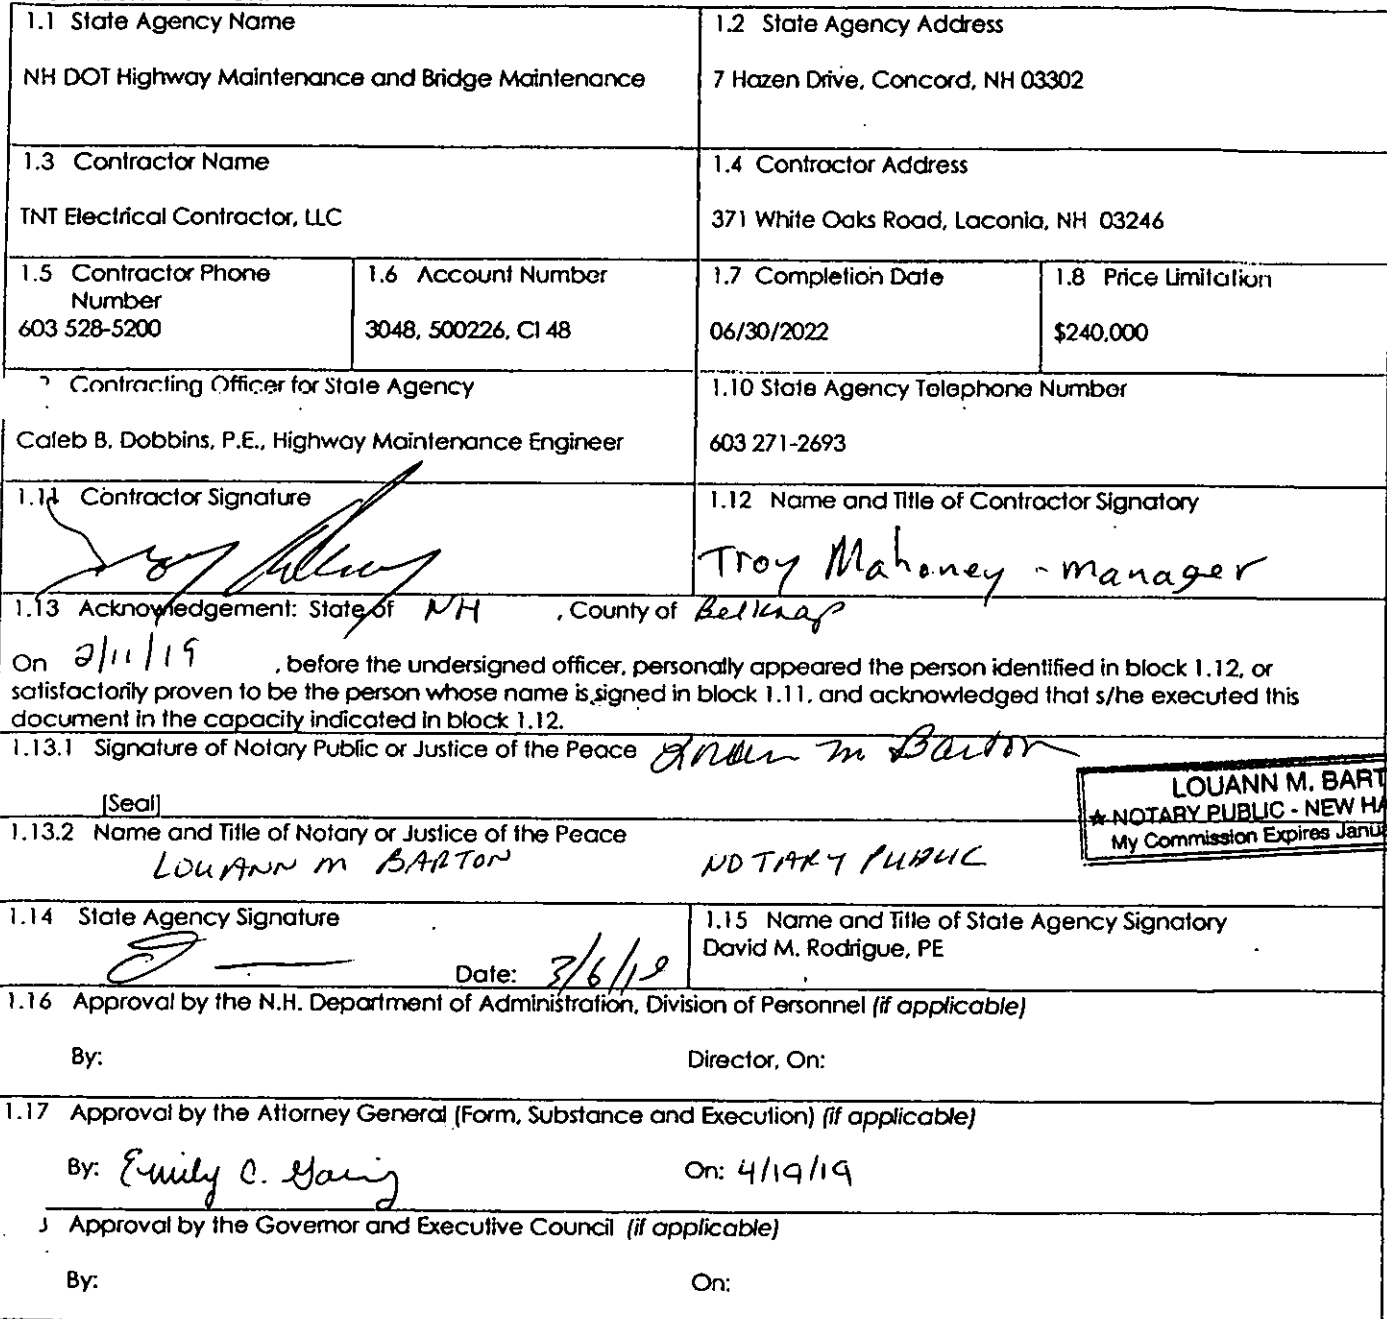 1.1 State Agency Name
1.2 State Agency Address
NH DOT Highway Maintenance and Bridge Maintenance
7 Hazen Drive, Concord, NH 03302
1.3 Contractor Name
1.4 Contractor Address
TNT Electrical Contractor, LLC
371 White Oaks Road, Laconia, NH 03246
1.5 Contractor Phone
Number
603 528-5200
1.6 Account Number
3048, 500226, Cl 48
1.7 Completion Date
06/30/2022
1.8 Price Limitation
$240,000
Contracting Officer for State Agency
1.10 State Agency Telephone Number
Caleb B. Dobbins, P.E., Highway Maintenance Engineer
603 271-2693
1.11 Contractor Signature
1.12 Name and Title of Contractor Signatory
Troy Mahoney - manager
1.13 Acknowledgement: State of NH , County of Belknap
On 2/11/19 , before the undersigned officer, personally appeared the person identified in block 1.12, or
satisfactorily proven to be the person whose name is signed in block 1.11, and acknowledged that s/he executed this
document in the capacity indicated in block 1.12.
1.13.1 Signature of Notary Public or Justice of the Peace
[Seal]
LOUANN M. BART
★ NOTARY PUBLIC - NEW HA
My Commission Expires Janu
1.13.2 Name and Title of Notary or Justice of the Peace
LOUANN M BARTON NOTARY PUBLIC
1.14 State Agency Signature
Date: 3/6/19
1.15 Name and Title of State Agency Signatory
David M. Rodrigue, PE
1.16 Approval by the N.H. Department of Administration, Division of Personnel (if applicable)
By: Director, On:
1.17 Approval by the Attorney General (Form, Substance and Execution) (if applicable)
By: Emily C. On: 4/19/19
Approval by the Governor and Executive Council (if applicable)
By: On: